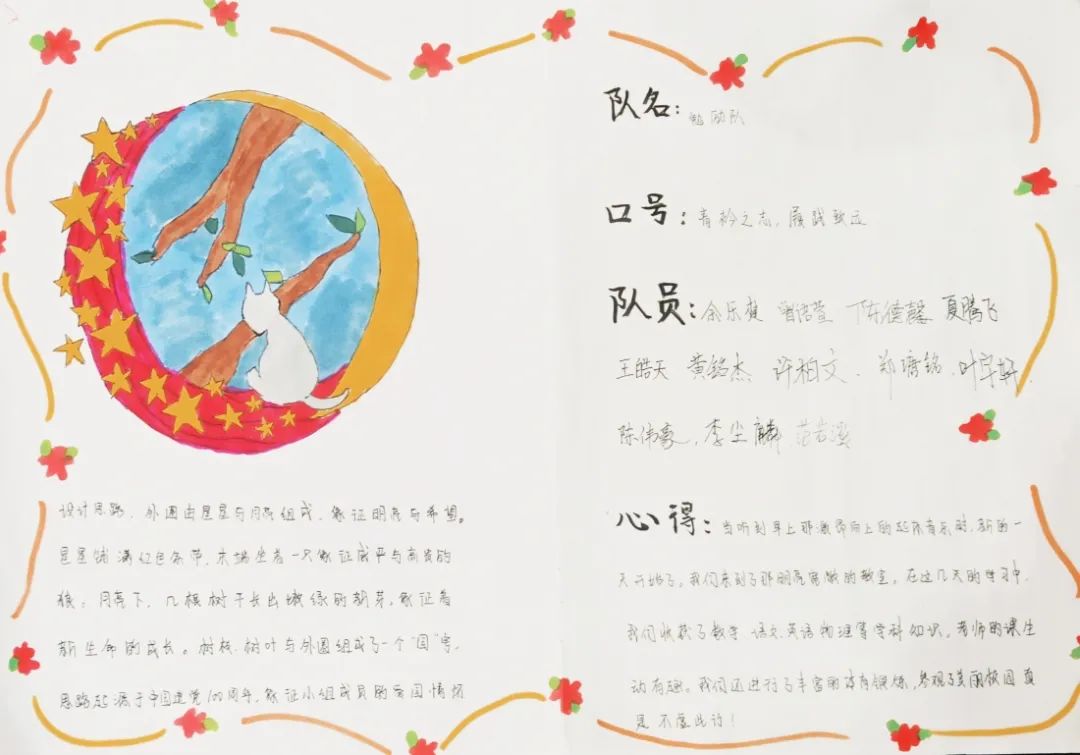 设计思路：外圈由星星与月亮组成，象证明亮与希望。
星星铺满红色条带，末端坐着一只象证威严与高贵的
狼。月亮下，几根树干长出嫩绿的新芽，象证着
新生命的成长。树枝、树叶与外圈组成了一个“国”字，
思路起源于中国建党100周年，象证小组成员的爱国情怀
队名：勉励队
口号：青衿之志，履践致远
队员：余乐 曾语萱 陈德馨 夏腾飞
王皓天 黄铭杰 许柏文 郑 铭 叶宇轩
陈伟豪 李尘麟 范若溪
心得：当听到早上那激昂向上的起床音乐时，新的一
天开始了。我们来到了那明亮宽敞的教室。在这几天的学习中，
我们收获了数学 语文 英语 物理等学科知识，老师的课生
动有趣。我们还进行了丰富的体育锻炼，参观了美丽校园 真
是不虚此行！